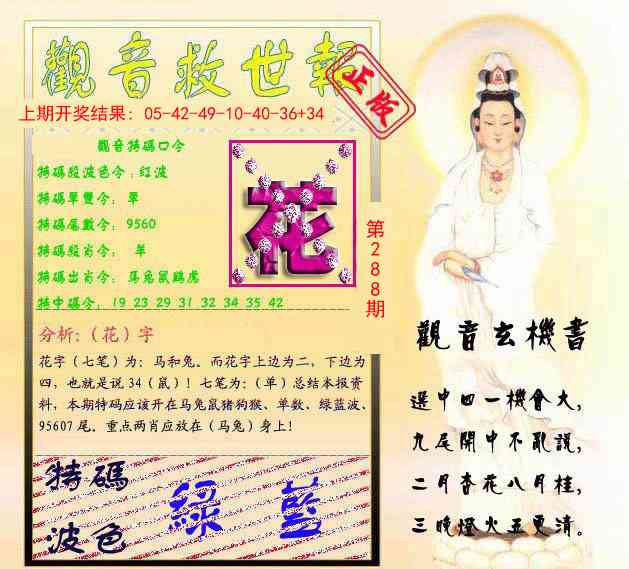 觀音救世報
正版
上期开奖结果：05-42-49-10-40-36+34
觀音特碼口令
特碼殺波色令：红波
特碼單雙令： 單
特碼尾數令： 9560
特碼殺肖令： 羊
特碼出肖令： 馬兔鼠鷄虎
特中碼令： 19 23 29 31 32 34 35 42
花
第288期
分析：（花）字
花字（七笔）为：马和兔。而花字上边为二，下边为
四，也就是说34（鼠）！七笔为：（单）总结本报资
料，本期特码应该开在马兔鼠猪狗猴、单数、绿蓝波、
95607尾。重点两肖应放在（马兔）身上！
特碼
波色
綠 藍
觀音玄機書
選中四一機會大，
九尾開中不亂説，
二月杏花八月桂，
三晚燈火五更清。